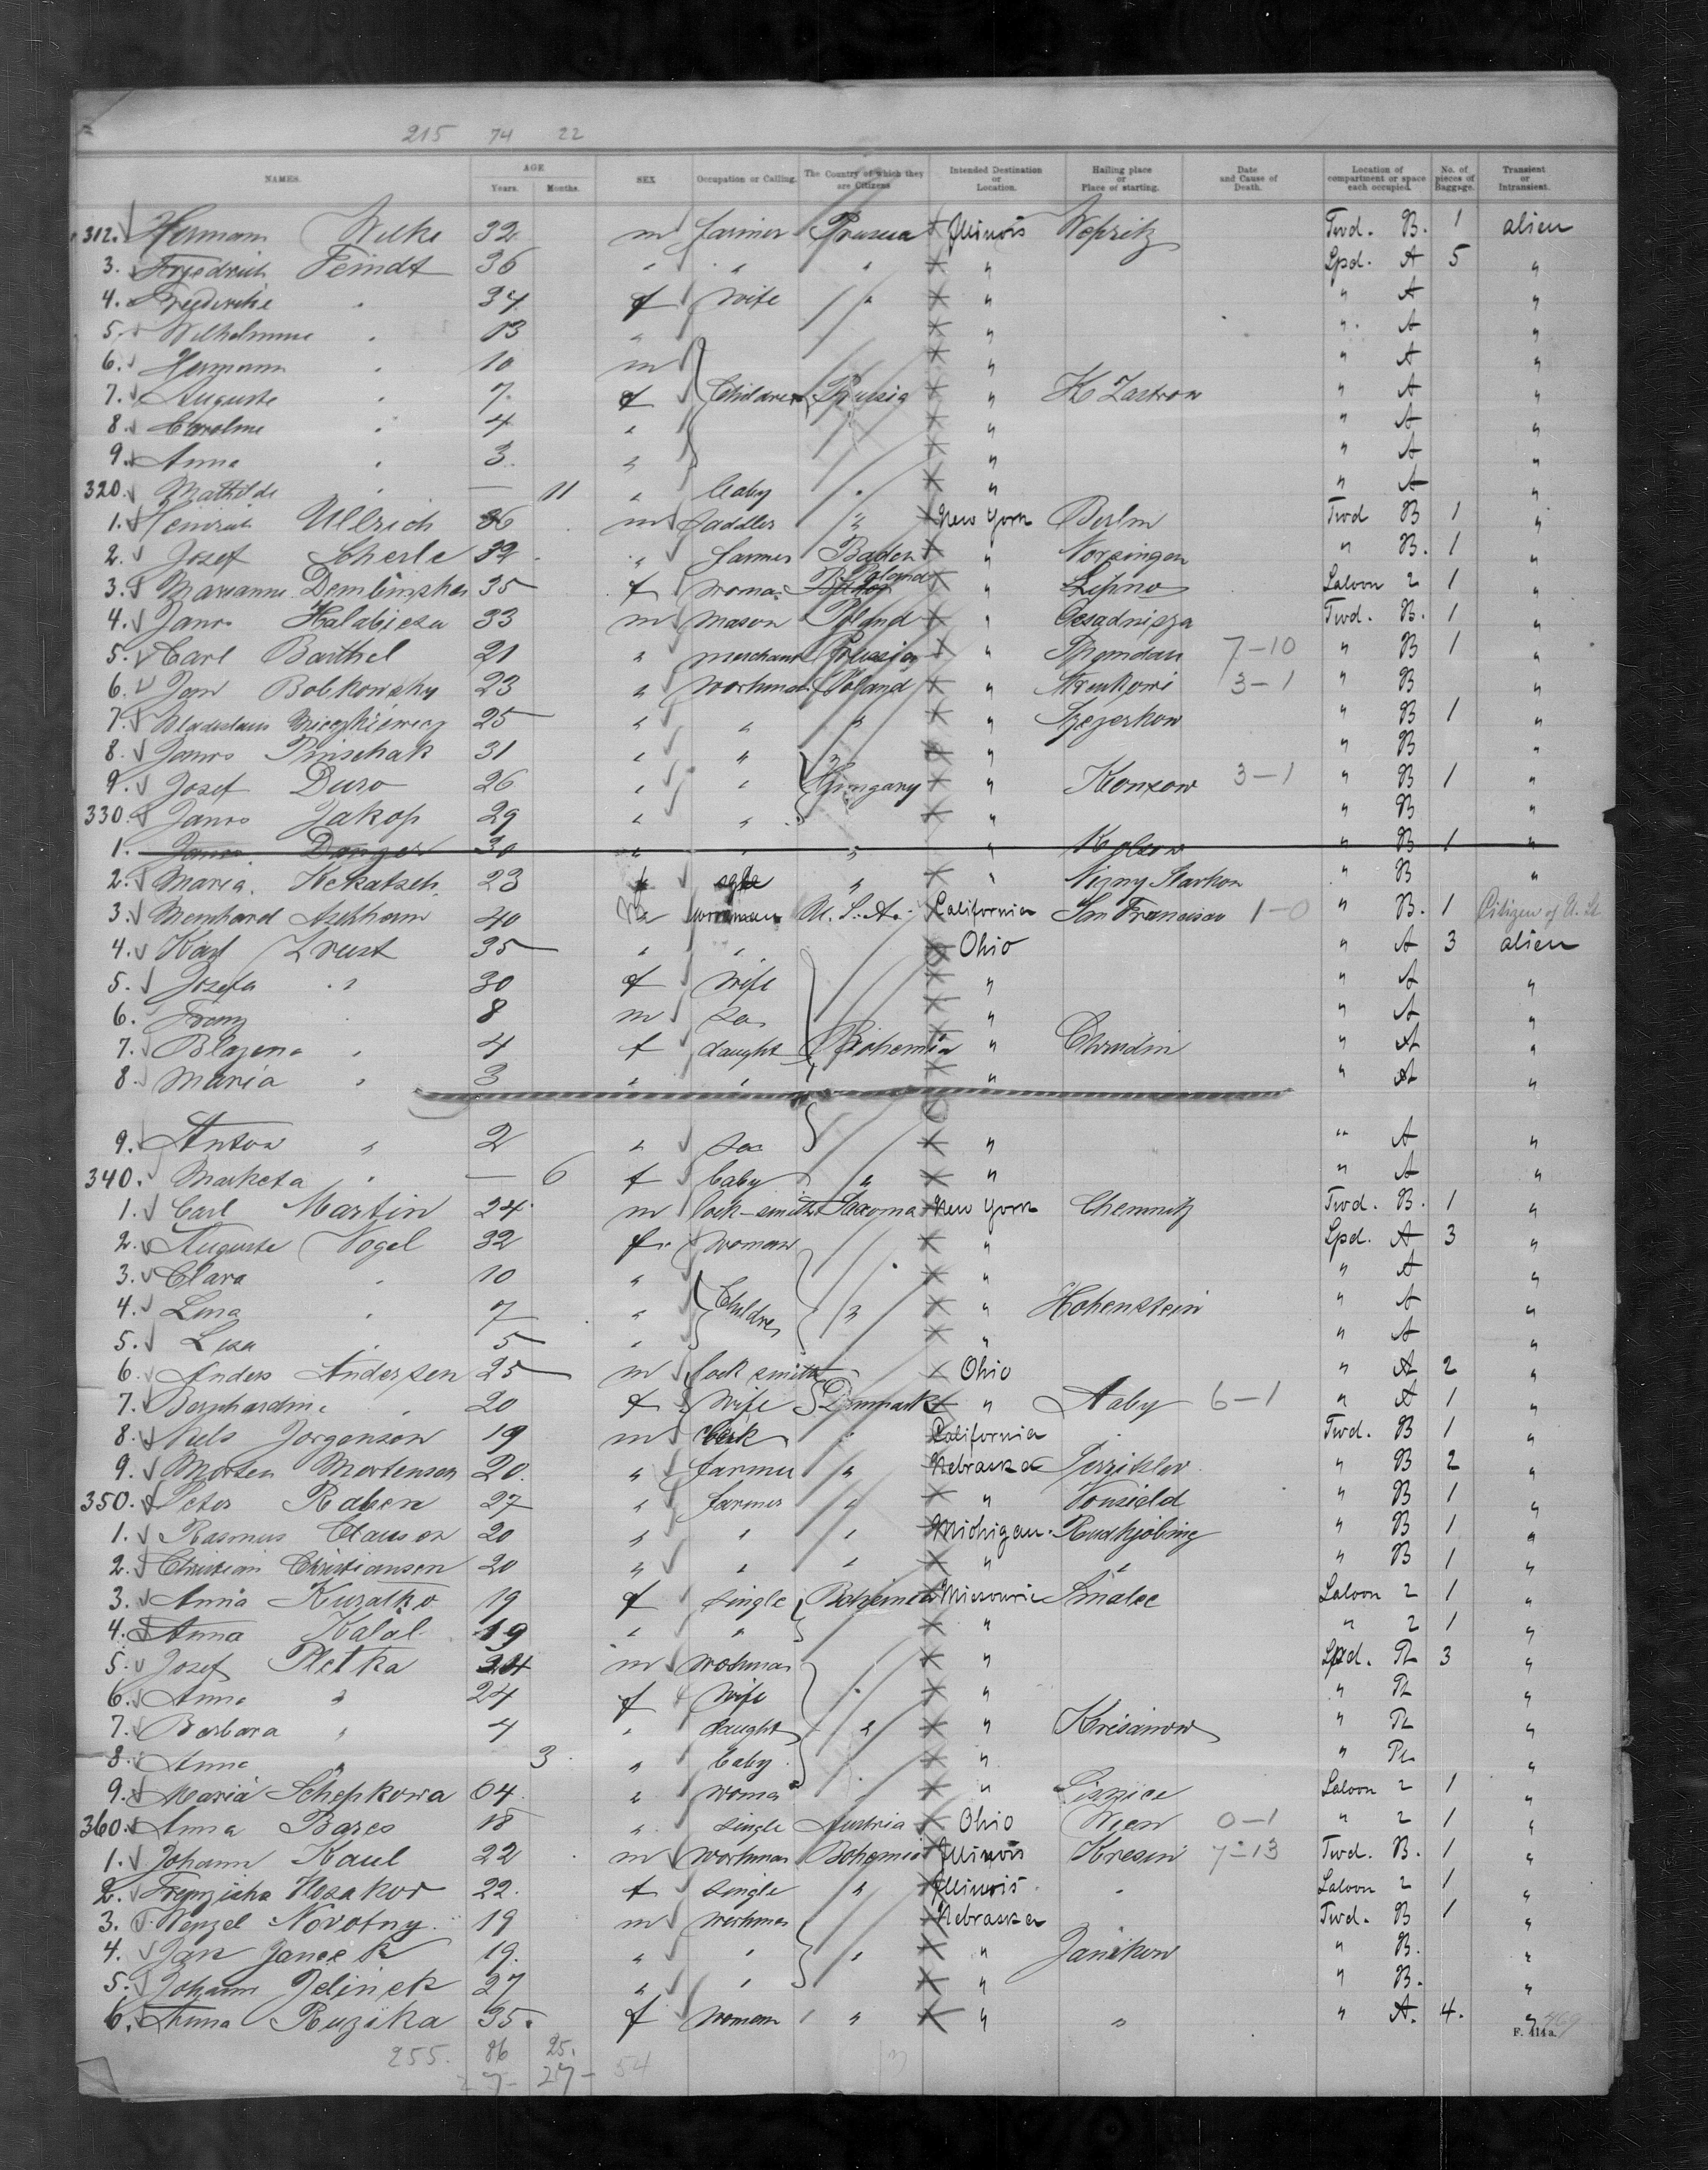 215 74 22
NAMES. AGE Years. Months. SEX Occupation or Calling. The Country of which they are Citizens Intended Destination or Location. Hailing place or Place of starting. Date and Cause of Death. Location of compartment or space each occupied. No. of pieces of Baggage. Transient or Intransient.
312. Hermann Wilke 32 m farmer Prussia Illinois Wepritz Twd. B. 1 alien
3. Friedrich Feindt 36 " " " " Spd. A 5 "
4. Friederike " 34 f wife " " " A "
5. Wilhelmine " 13 " " " A "
6. Hermann " 10 m " " A "
7. Auguste " 7 f Children Prussia " K Zastrow " A "
8. Caroline " 4 " " " A "
9. Anna " 3 " " " A "
320. Mathilde " — 11 " baby " " " A "
1. Heinrich Ullrich 36 m saddler " New York Berlin Twd B 1 "
2. Josef Scherle 32 " farmer Baden " Norsingen " B. 1 "
3. Marianna 35 f woman Poland " Lipino Saloon 2 1 "
4. Janos Halabicza 33 m mason Poland " Twd. B. 1 "
5. Carl Barthel 21 " merchant Prussia " 7-10 " B 1 "
6. Jan Bobkowsky 23 " workman Poland " 3-1 " B "
7. 25 " " " " " B 1 "
8. Janos Pinschak 31 " " " " " B "
9. Josef Duro 26 " " Hungary " 3-1 " B 1 "
330. Janos Jakop 29 " " " " B "
1. Janos 30 " " " " " B 1 "
2. Maria 23 f " " " " B "
3. 40 m workman U. S. A. California San Francisco 1-0 " B. 1 Citizen of U. St
4. Karl 35 " " Ohio " A 3 alien
5. Josefa " 30 f wife " " A "
6. Franz 8 m son " " A "
7. Blazena " 4 f daught Bohemia " Chrudim " A "
8. Maria " 3 " " " " A "
9. Anton " 2 " son " " A "
340. Marketa " — 6 f baby " " " A "
1. Carl Martin 24 m lock-smith Saxonia New York Chemnitz Twd. B. 1 "
2. Auguste Vogel 32 f woman " Spd. A 3 "
3. Clara " 10 " " " A "
4. Lina " 7 " Children " " Hohenstein " A "
5. Lisa " 5 " " " A "
6. Anders Andersen 25 m lock smith Ohio " A 2 "
7. Bernhardine " 20 f wife Denmark " Aaby 6-1 " A 1 "
8. Nels Jorgensen 19 m clerk " California Twd. B 1 "
9. Morten Mortensen 20 " farmer " Nebraska " B 2 "
350. Peter Raben 27 " farmer " " Vonsield " B 1 "
1. Rasmus Clausen 20 " " " Michigan Rudkjobing " B 1 "
2. Christian Christiansen 20 " " " " " " B 1 "
3. Anna Kuratko 19 f single Bohemia Missouri Smalec Saloon 2 1 "
4. Anna Kalal 19 " " " " 2 1 "
5. Josef Pletka 24 m workman " Spd. 3 "
6. Anna " 24 f wife " " " "
7. Barbara " 4 " daught " " Krisanow " "
8. Anna " 3 " baby " " "
9. Maria Schepkowa 64 " woman " " Saloon 2 1 "
360. Anna Bares 18 " single Austria Ohio Wien 0-1 " 2 1 "
1. Johann Kaul 22 m workman Bohemia Illinois Kresin 7-13 Twd. B. 1 "
2. 22 f single " Illinois " Saloon 2 1 "
3. Wenzel Novotny 19 m workman Nebraska Twd. B 1 "
4. Jan Janecek 19 " " " " Janikow " B. "
5. Johann Jelinek 27 " " " " B. "
6. Anna Ruzika 35 f woman " " " " A. 4. "
F. 414 a.
255. 86 25.
27- 54